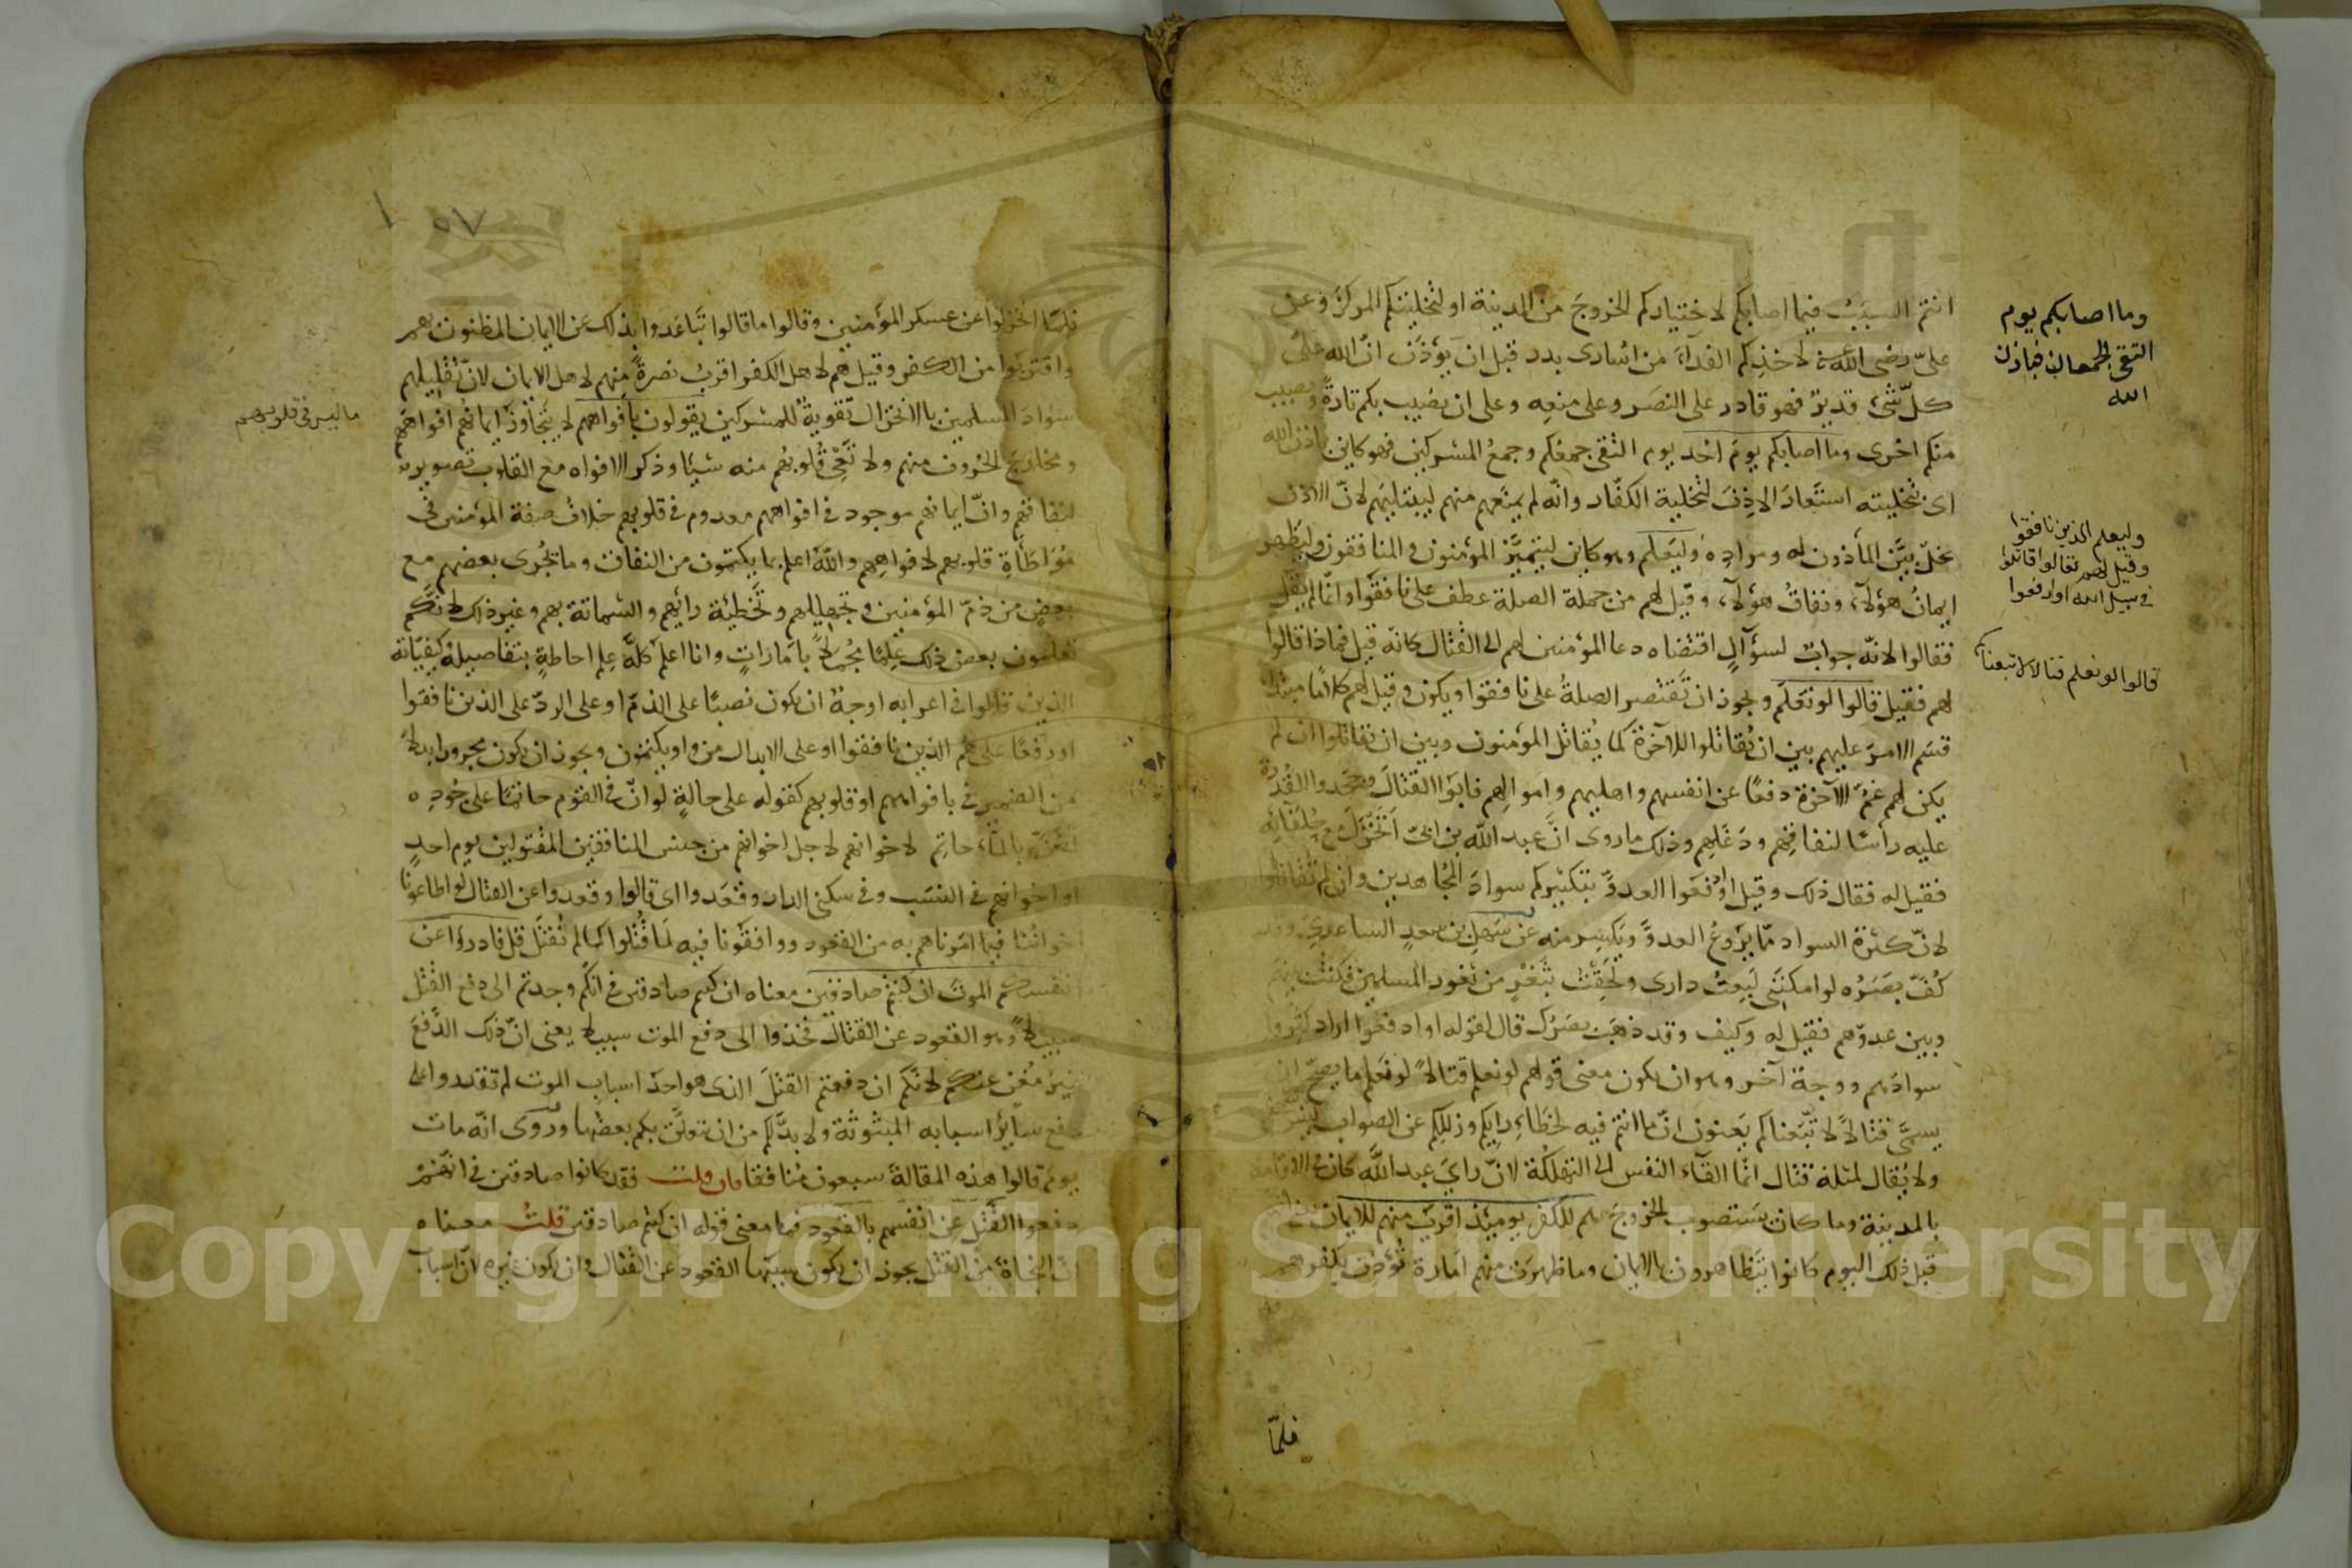 انتم السبب فيما اصابكم لاختياركم الخروج من المدينة او لتخليتكم المركز وعن
علىّ رضى الله عنه لاخذكم الفداء من اسارى بدر قبل ان يؤذن انّ الله على
كلّ شئ قدير فهو قادر على النصر وعلى منعه وعلى ان يصيب بكم تارة ويصيب
منكم اخرى وما اصابكم يوم احد يوم التقى جمعكم وجمع المشركين فهو كاين باذن الله
اى بتخليته استعار الاذن لتخلية الكفّار وانّه لم يمنعهم منهم ليبتليهم لانّ الاذن
مخلّ بين المأذون له ومراده وليعلم وهو كاين ليتميّز المؤمنون والمنافقون وليظهر
ايمان هؤلآء ونفاق هؤلآء وقيل لهم من جملة الصلة عطف على نافقوا وانّما لم يقل
فقالوا لانّه جواب لسؤآل اقتضاه دعا المؤمنين لهم الى القتال كانّه قيل فماذا قالوا
لهم فقيل قالوا لو نعلم ويجوز ان تقتصر الصلة على نافقوا ويكون وقيل لهم كلاما مبتدا
قسّم الامر عليهم بين ان يقاتلوا للآخرة كما يقاتل المؤمنون وبين ان يقاتلوا ان لم
يكن لهم غمّ الآخرة دفعا عن انفسهم واهليهم واموالهم فابوا القتال وجحدوا القدرة
عليه رأسا لنفاقهم ودغلهم وذلك ما روى انّ عبد الله بن ابىّ انخزل مع حلفائه
فقيل له فقال ذلك وقيل او ادفعوا العدوّ بتكثيركم سواد المجاهدين وان لم تقاتلوا
لانّ كثرة السواد ممّا يروع العدوّ ويكسر منه عن سهل بن سعد الساعدى وقد
كفّ بصره لو امكننى لبعت دارى ولحقت بثغر من ثغور المسلمين فكنت بينهم
وبين عدوّهم فقيل له وكيف وقد ذهب بصرك قال لقوله او ادفعوا اراد كثّروا
سوادهم ووجه آخر وهو ان يكون معنى قولهم لو نعلم قتالا لو نعلم ما يصحّ ان
يسمّى قتالا لاتّبعناكم يعنون انّ ما انتم فيه لخطاء رايكم وزللكم عن الصواب ليس بشئ
ولا يقال لمثله قتال انّما القآء النفس الى التهلكة لانّ راى عبد الله كان فى الاقامة
بالمدينة وما كان يستصوب الخروج هم للكفر يومئذ اقرب منهم للايمان
قبل ذلك اليوم كانوا يتظاهرون بالايمان وما ظهرت منهم امارة تؤذن بكفرهم
فلمّا
وما اصابكم يوم
التقى الجمعان فباذن
الله
وليعلم الذين نافقوا
وقيل لهم تعالوا قاتلوا
فى سبيل الله او ادفعوا
قالوا لو نعلم قتالا لاتبعناكم
٥٧
فلمّا انخزلوا عن عسكر المؤمنين وقالوا ما قالوا تباعدوا بذلك عن الايمان المظنون بهم
واقتربوا من الكفر وقيل هم لاهل الكفر اقرب نصرة منهم لاهل الايمان لانّ تقليلهم
سواد المسلمين بالانخزال تقوية للمشركين يقولون بافواههم لا يتجاوز ايمانهم افواههم
ومخارج الحروف منهم ولا تعى قلوبهم منه شيئا وذكر الافواه مع القلوب تصوير
لنفاقهم وانّ ايمانهم موجود فى افواههم معدوم فى قلوبهم خلاف صفة المؤمنين فى
مواطأة قلوبهم لافواههم والله اعلم بما يكتمون من النفاق وما يجرى بعضهم مع
بعض من ذمّ المؤمنين وتجهيلهم وتخطئة رايهم والشماتة بهم وغير ذلك لانّكم
تعلمون بعض ذلك علما مجملا بامارات وانا اعلم كلّه علم احاطة بتفاصيله وكيفيّاته
الذين قالوا فى اعرابه اوجه ان يكون نصبا على الذمّ او على الردّ على الذين نافقوا
او رفعا على هم الذين نافقوا او على الابدال من واو يكتمون ويجوز ان يكون مجرورا بدلا
من الضمير فى بافواههم او قلوبهم كقوله على حالة لو انّ فى القوم حاتما على جوده
لضنّ بالماء حاتم لاخوانهم لاجل اخوانهم من جنس المنافقين المقتولين يوم احد
او اخوانهم فى النسب وفى سكنى الدار وقعدوا اى قالوا وقعدوا عن القتال لو اطاعونا
اخواننا فيما امرناهم به من القعود ووافقونا فيه لما قتلوا كما لم نقتل قل فادرءوا عن
انفسكم الموت ان كنتم صادقين معناه ان كنتم صادقين فى انّكم وجدتم الى دفع القتل
سبيلا وهو القعود عن القتال فخذوا الى دفع الموت سبيلا يعنى انّ ذلك الدفع
غير مغن عنكم لانّكم ان دفعتم القتل الذى هو احد اسباب الموت لم تقدروا على
دفع سآير اسبابه المبثوثة ولا بدّ لكم من ان تعلّق بكم بعضها وروى انّه مات
يوم قالوا هذه المقالة سبعون منافقا فان قلت فقد كانوا صادقين فى انّهم
دفعوا القتل عن انفسهم بالقعود فما معنى قوله ان كنتم صادقين قلت معناه
انّ النجاة من القتل يجوز ان يكون سببها القعود عن القتال وان يكون غيره لانّ اسباب
ما ليس فى قلوبهم
Copyright © King Saud University
1957